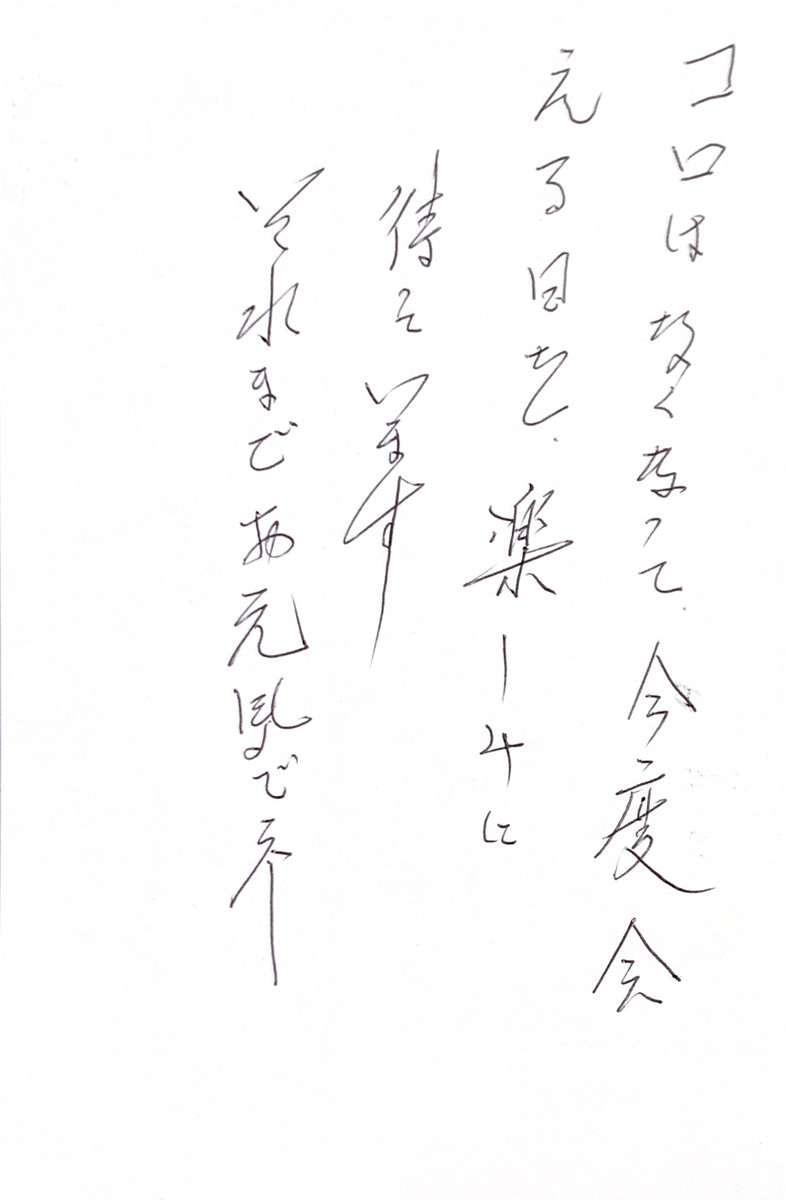 コロはなくなって、今度会
える日を、楽しみに
待っています
それまでお元気でネー